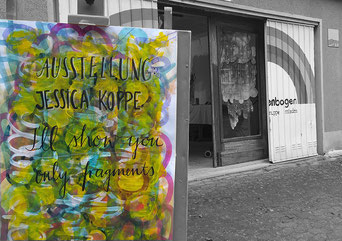 AUSSTELLUNG:
JESSICA KOPPE.
I'll show you
only fragments
enbogen